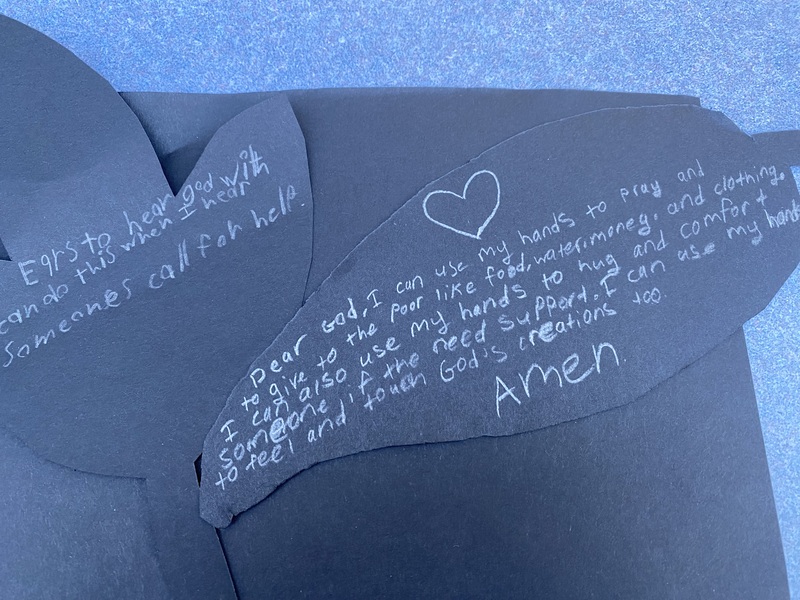 Ears to hear god with
can do this when I hear
Someones call for help
Dear God, I can use my hands to pray and
to give to the poor like food, water, money, and clothing.
I can also use my hands to hug and comfort
someone if the need support. I can use my hands
to feel and touch God's creations too.
Amen.